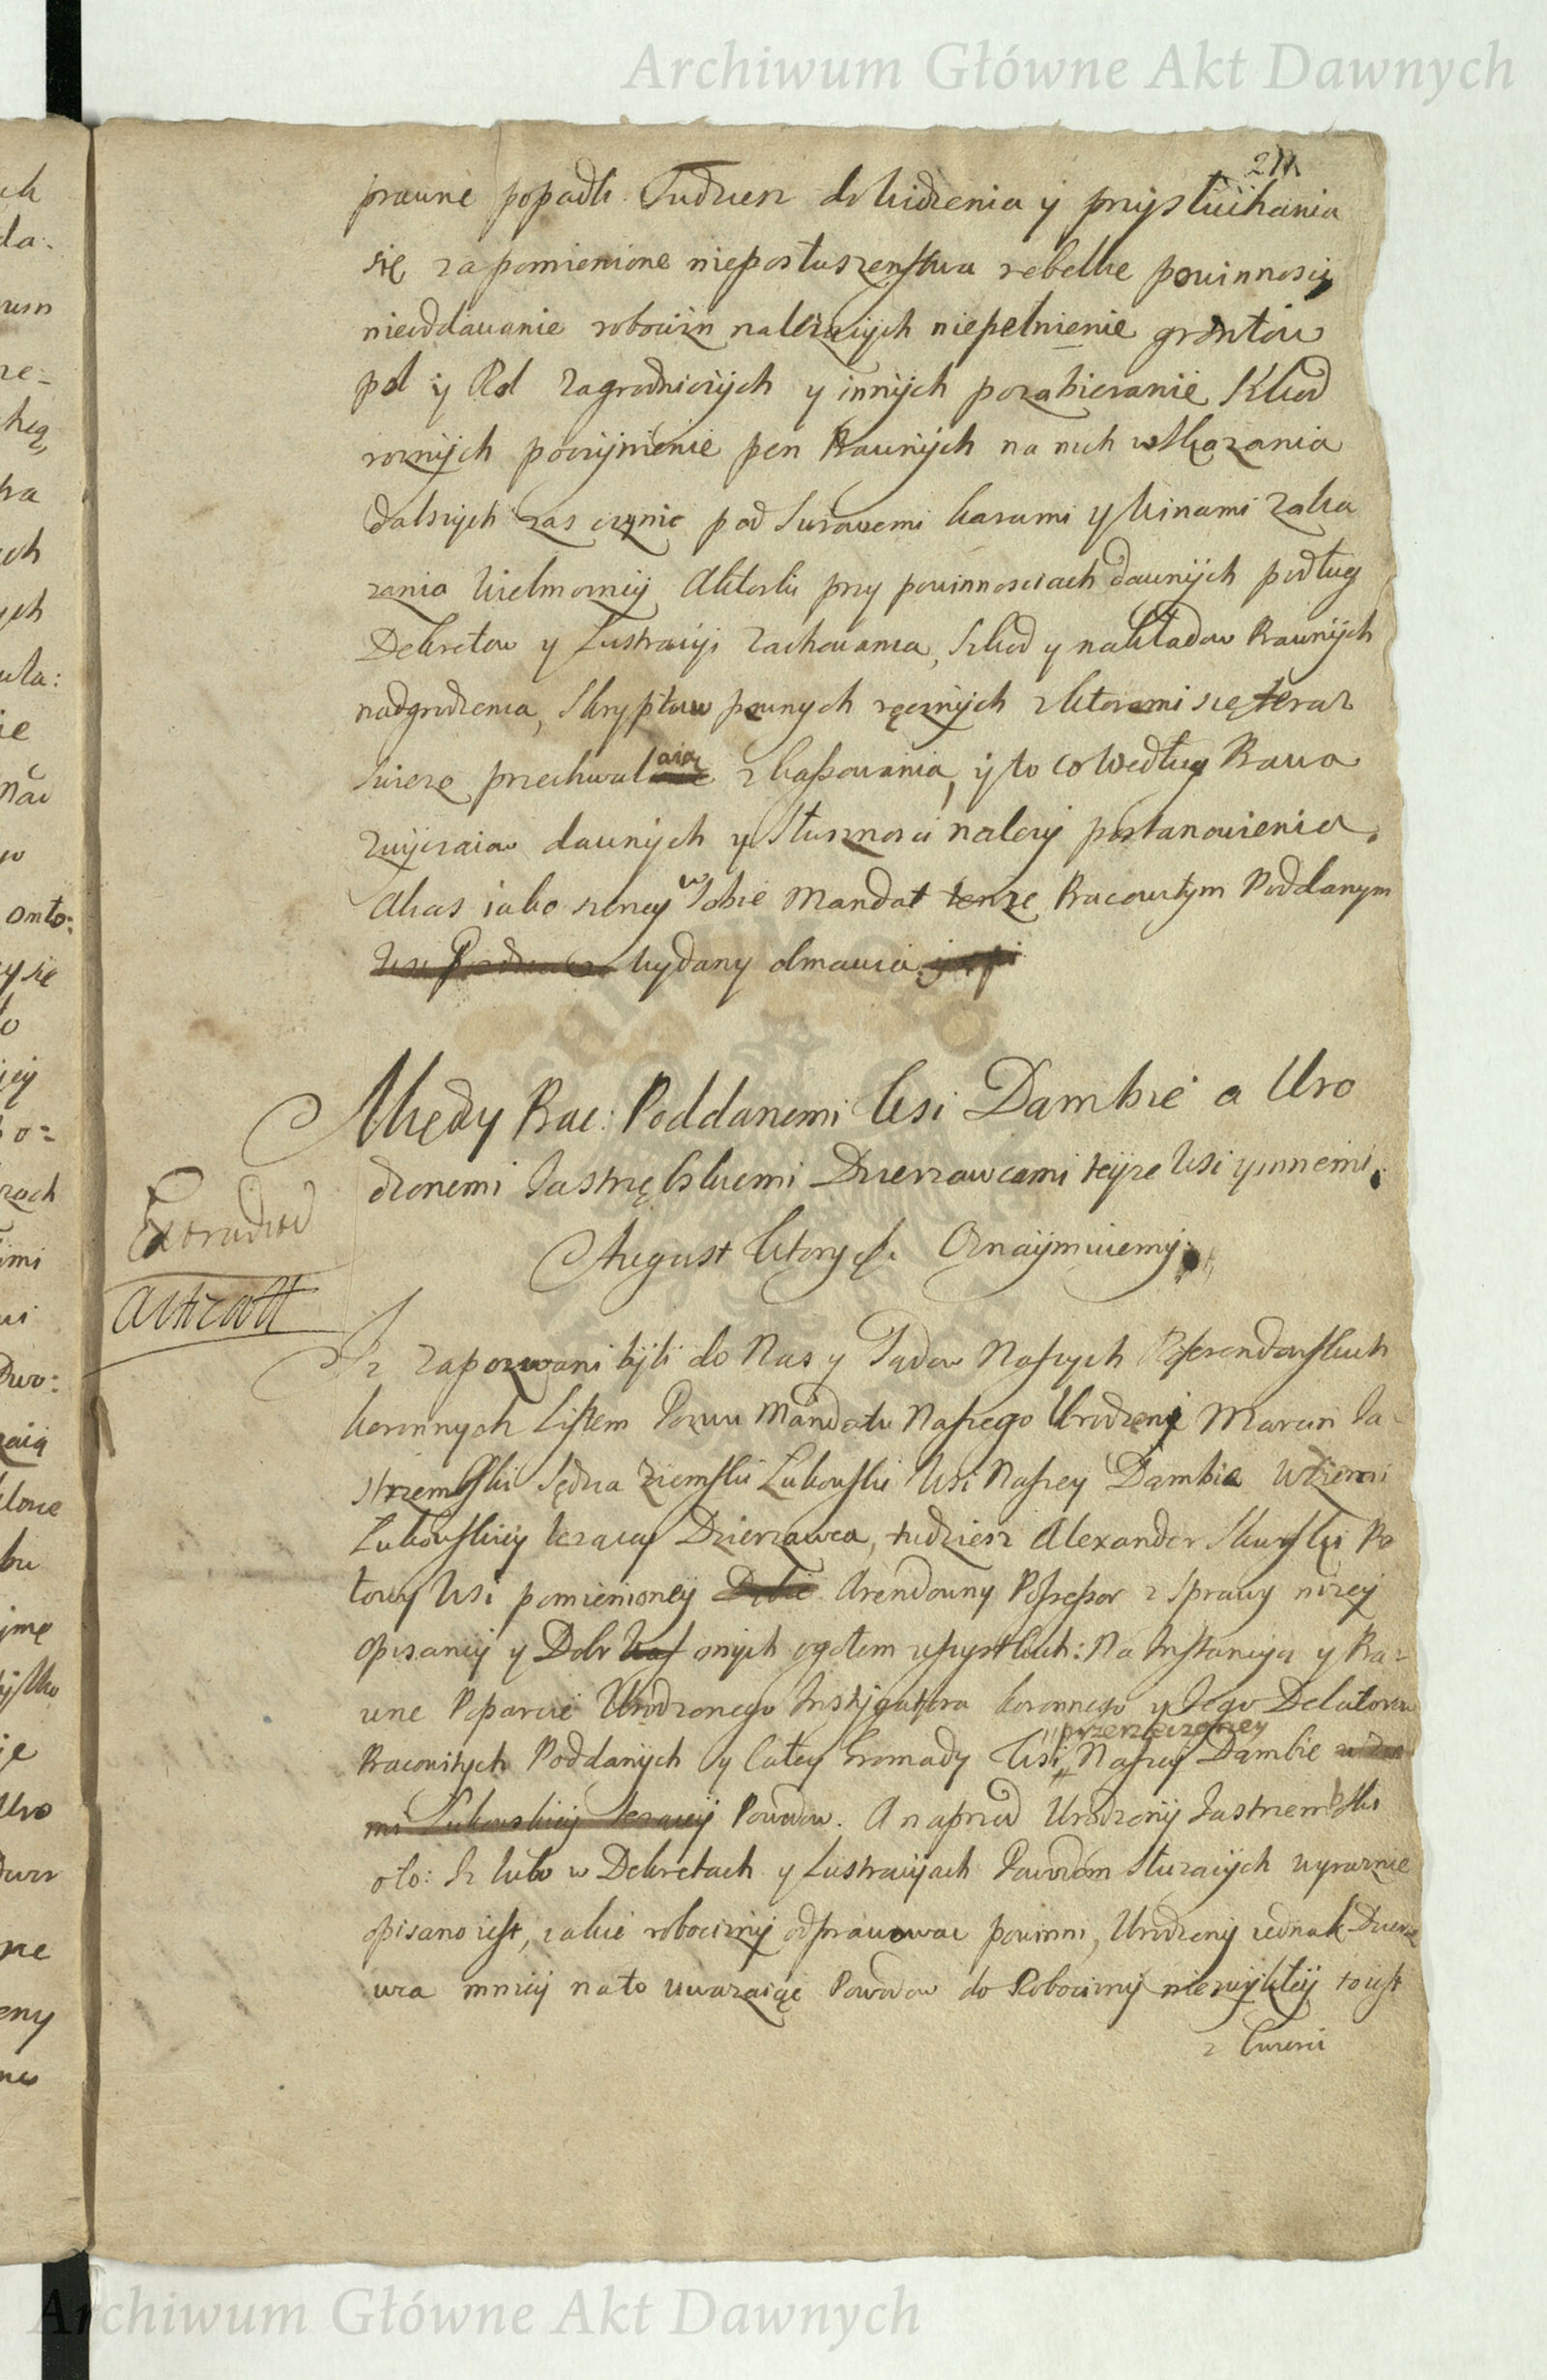 Archiwum Główne Akt Dawnych
prawne popadli Tudziesz do widzenia y przysłuchania
się za pomienione nieposłuszenstwa rebellie powinnosci
nieoddawanie robocizn należących niepełnienie grontow
pol y Rol Zagrodniczych y innych pozabieranie Szkod
roznych poczynienie pen Prawnych na nich wskazania
dalszych zas czynic pod surowemi karami y winami zaka
zania Wielmozney Aktorki przy powinnosciach dawnych podług
Dekretow y Lustracyi zachowania, szkod y nakładow Prawnych
nadgrodzenia, Skryptow pewnych ręcznych z ktoremi się teraz
swiezo przechwalaią zkassowania, y to co według Prawa
zwyczaiow dawnych y słusznosci nalezy postanowienia.
Akas iako szerzey w Sobie Mandat tenze Pracowitym Poddanym
wydany obmawia
Między Prac: Poddanemi Wsi Dambie a Uro
dzonemi Jastrzębskiemi Dzierzawcami teyze Wsi y innemi.
August Wtory &c. Oznaymuiemy.
Extradit
Iz Zapozwani byli do Nas y Sądow Naszych Referendarskich
koronnych Listem Pozwu Mandatu Naszego Urodzony Marcin Ja-
strzembski Sędzia Ziemski Łukowski Wsi Naszey Dambia w Ziemi
Łukowskiey lezącey Dzierzawca, tudziesz Alexander Skurski Po
łowy Wsi pomienioney Arendowny Possessor z sprawy nizey
opisaney y Dobr onych ogołem wszystkich: Na Instancyą y Pra-
wne Poparcie Urodzonego Instygatora koronnego y Jego Delatorow
przerzeczoney
Pracowitych Poddanych y całey Gromady Wsi Naszey Dambie w Zie
mi Łukowskiey lezącey Powodow. A naprzod Urodzony Jastrzembski
oto: Iz lubo w Dekretach y Lustracyach Powodom słuzących wyraznie
opisano iest, iakie robocizny odprawowac powinni, Urodzony iednak Dzierza
wca mniey na to uwazaiąc Powodow do Robocizny niezwykłey to iest
z cwierci
Archiwum Główne Akt Dawnych